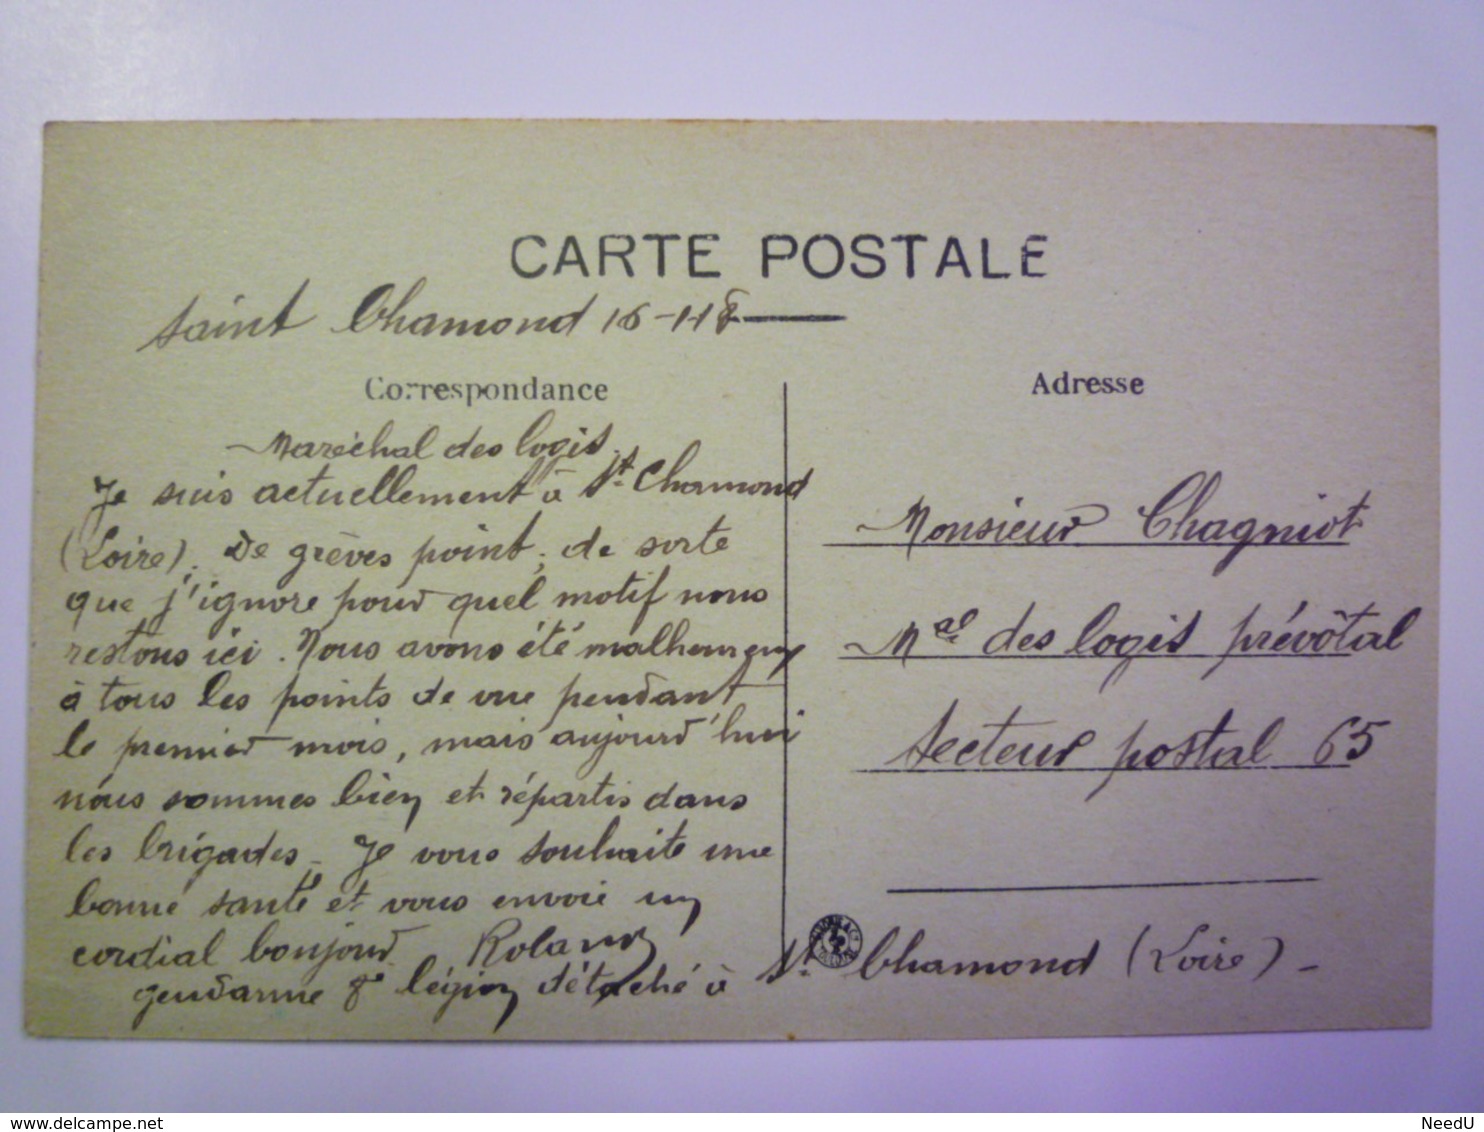 CARTE POSTALE
Saint Chamond 16-1-18
Correspondance
Maréchal des logis.
Je suis actuellement à St. Chamond
(Loire). De grèves point, de sorte
que j'ignore pour quel motif nous
restons ici. Nous avons été malheureux
à tous les points de vue pendant
le premier mois, mais aujourd'hui
nous sommes bien et répartis dans
les brigades. Je vous souhaite une
bonne santé et vous envoie un
cordial bonjour Roland
gendarme 8e légion détaché à St. Chamond (Loire) -
Adresse
Monsieur Chagniot
Mal des logis prévôtal
Secteur postal 65
Delcampe.net
NeedU